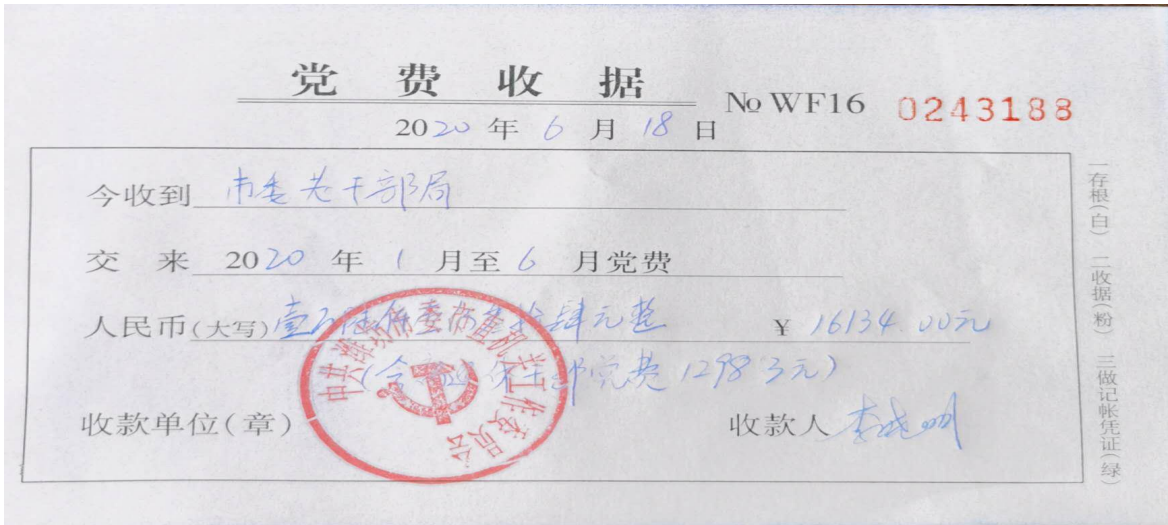 党费收据
№ WF16 0243188
2020年6月18日
今收到 市委老干部局
交来 2020年1月至6月党费
人民币(大写) 壹万陆仟壹佰叁拾肆元整 ¥ 16134.00元
(含 休干部党费12983元)
收款单位(章)
收款人
中共潍坊市委市直机关工作委员会
一存根(白) 二收据(粉) 三做记帐凭证(绿)